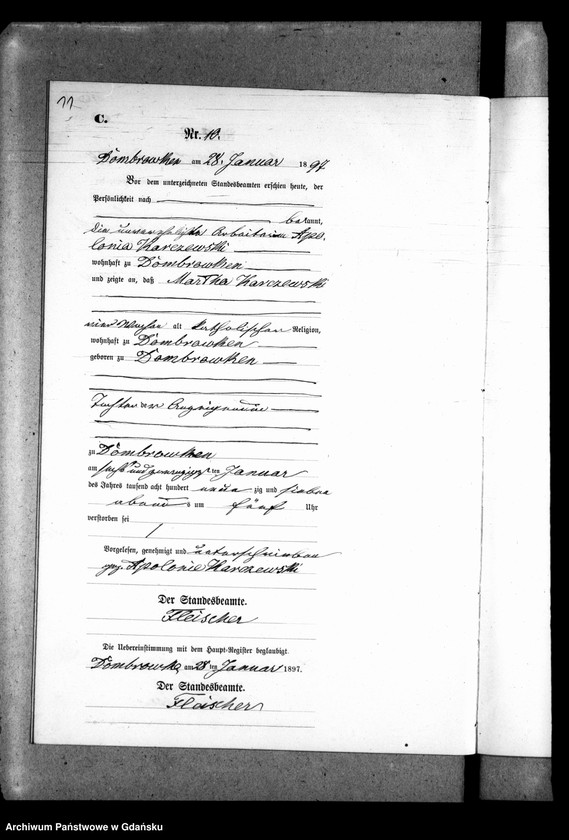 11
C.
Nr. 10.
Dombrowken am 28. Januar 1897
Vor dem unterzeichneten Standesbeamten erschien heute, der
Persönlichkeit nach
bekannt,
die unverehelichte Arbeiterin Apo-
lonia Karczewski
wohnhaft zu Dombrowken
und zeigte an, daß Martha Karczewski
vier Wochen alt katholischer Religion,
wohnhaft zu Dombrowken
geboren zu Dombrowken
Tochter der Anzeigerin
zu Dombrowken
am sechsundzwanzigsten Januar
des Jahres tausend acht hundert neun zig und sieben
abends um fünf Uhr
verstorben sei
Vorgelesen, genehmigt und unterschrieben
gez. Apolonie Karczewski
Der Standesbeamte.
Fleischer
Die Uebereinstimmung mit dem Haupt-Register beglaubigt.
Dombrowken am 28 ten Januar 1897.
Der Standesbeamte.
Fleischer
Archiwum Państwowe w Gdańsku